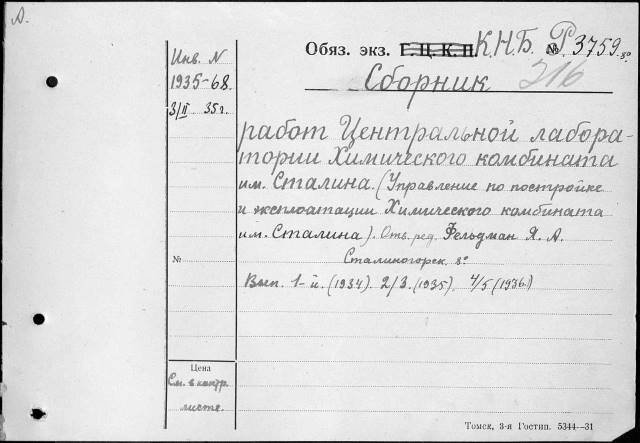 А.
Инв. N
1935-68
3/II 35г.
Обяз. экз. Г. Ц. К. П. К.Н.Б. № Р 3759 8°
Сборник 216
работ Центральной лабора-
тории Химического комбината
им. Сталина. (Управление по постройке
и эксплоатации Химического комбината
им. Сталина). Отв. ред. Фельдман Я. А.
Сталиногорск. 8°
№
Вып. 1-й. (1934). 2/3. (1935). 4/5 (1936.)
Цена
См. в контр.
листе.
Томск, 3-я Гостип. 5344—31